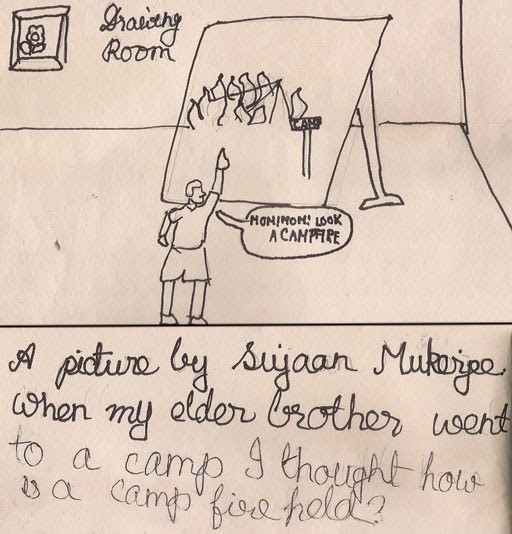 Drawing
Room
CAMP
MOM!MOM! LOOK
A CAMPFIRE
A picture by Sujaan Mukerjee.
When my elder brother went
to a camp I thought how
is a camp fire held?